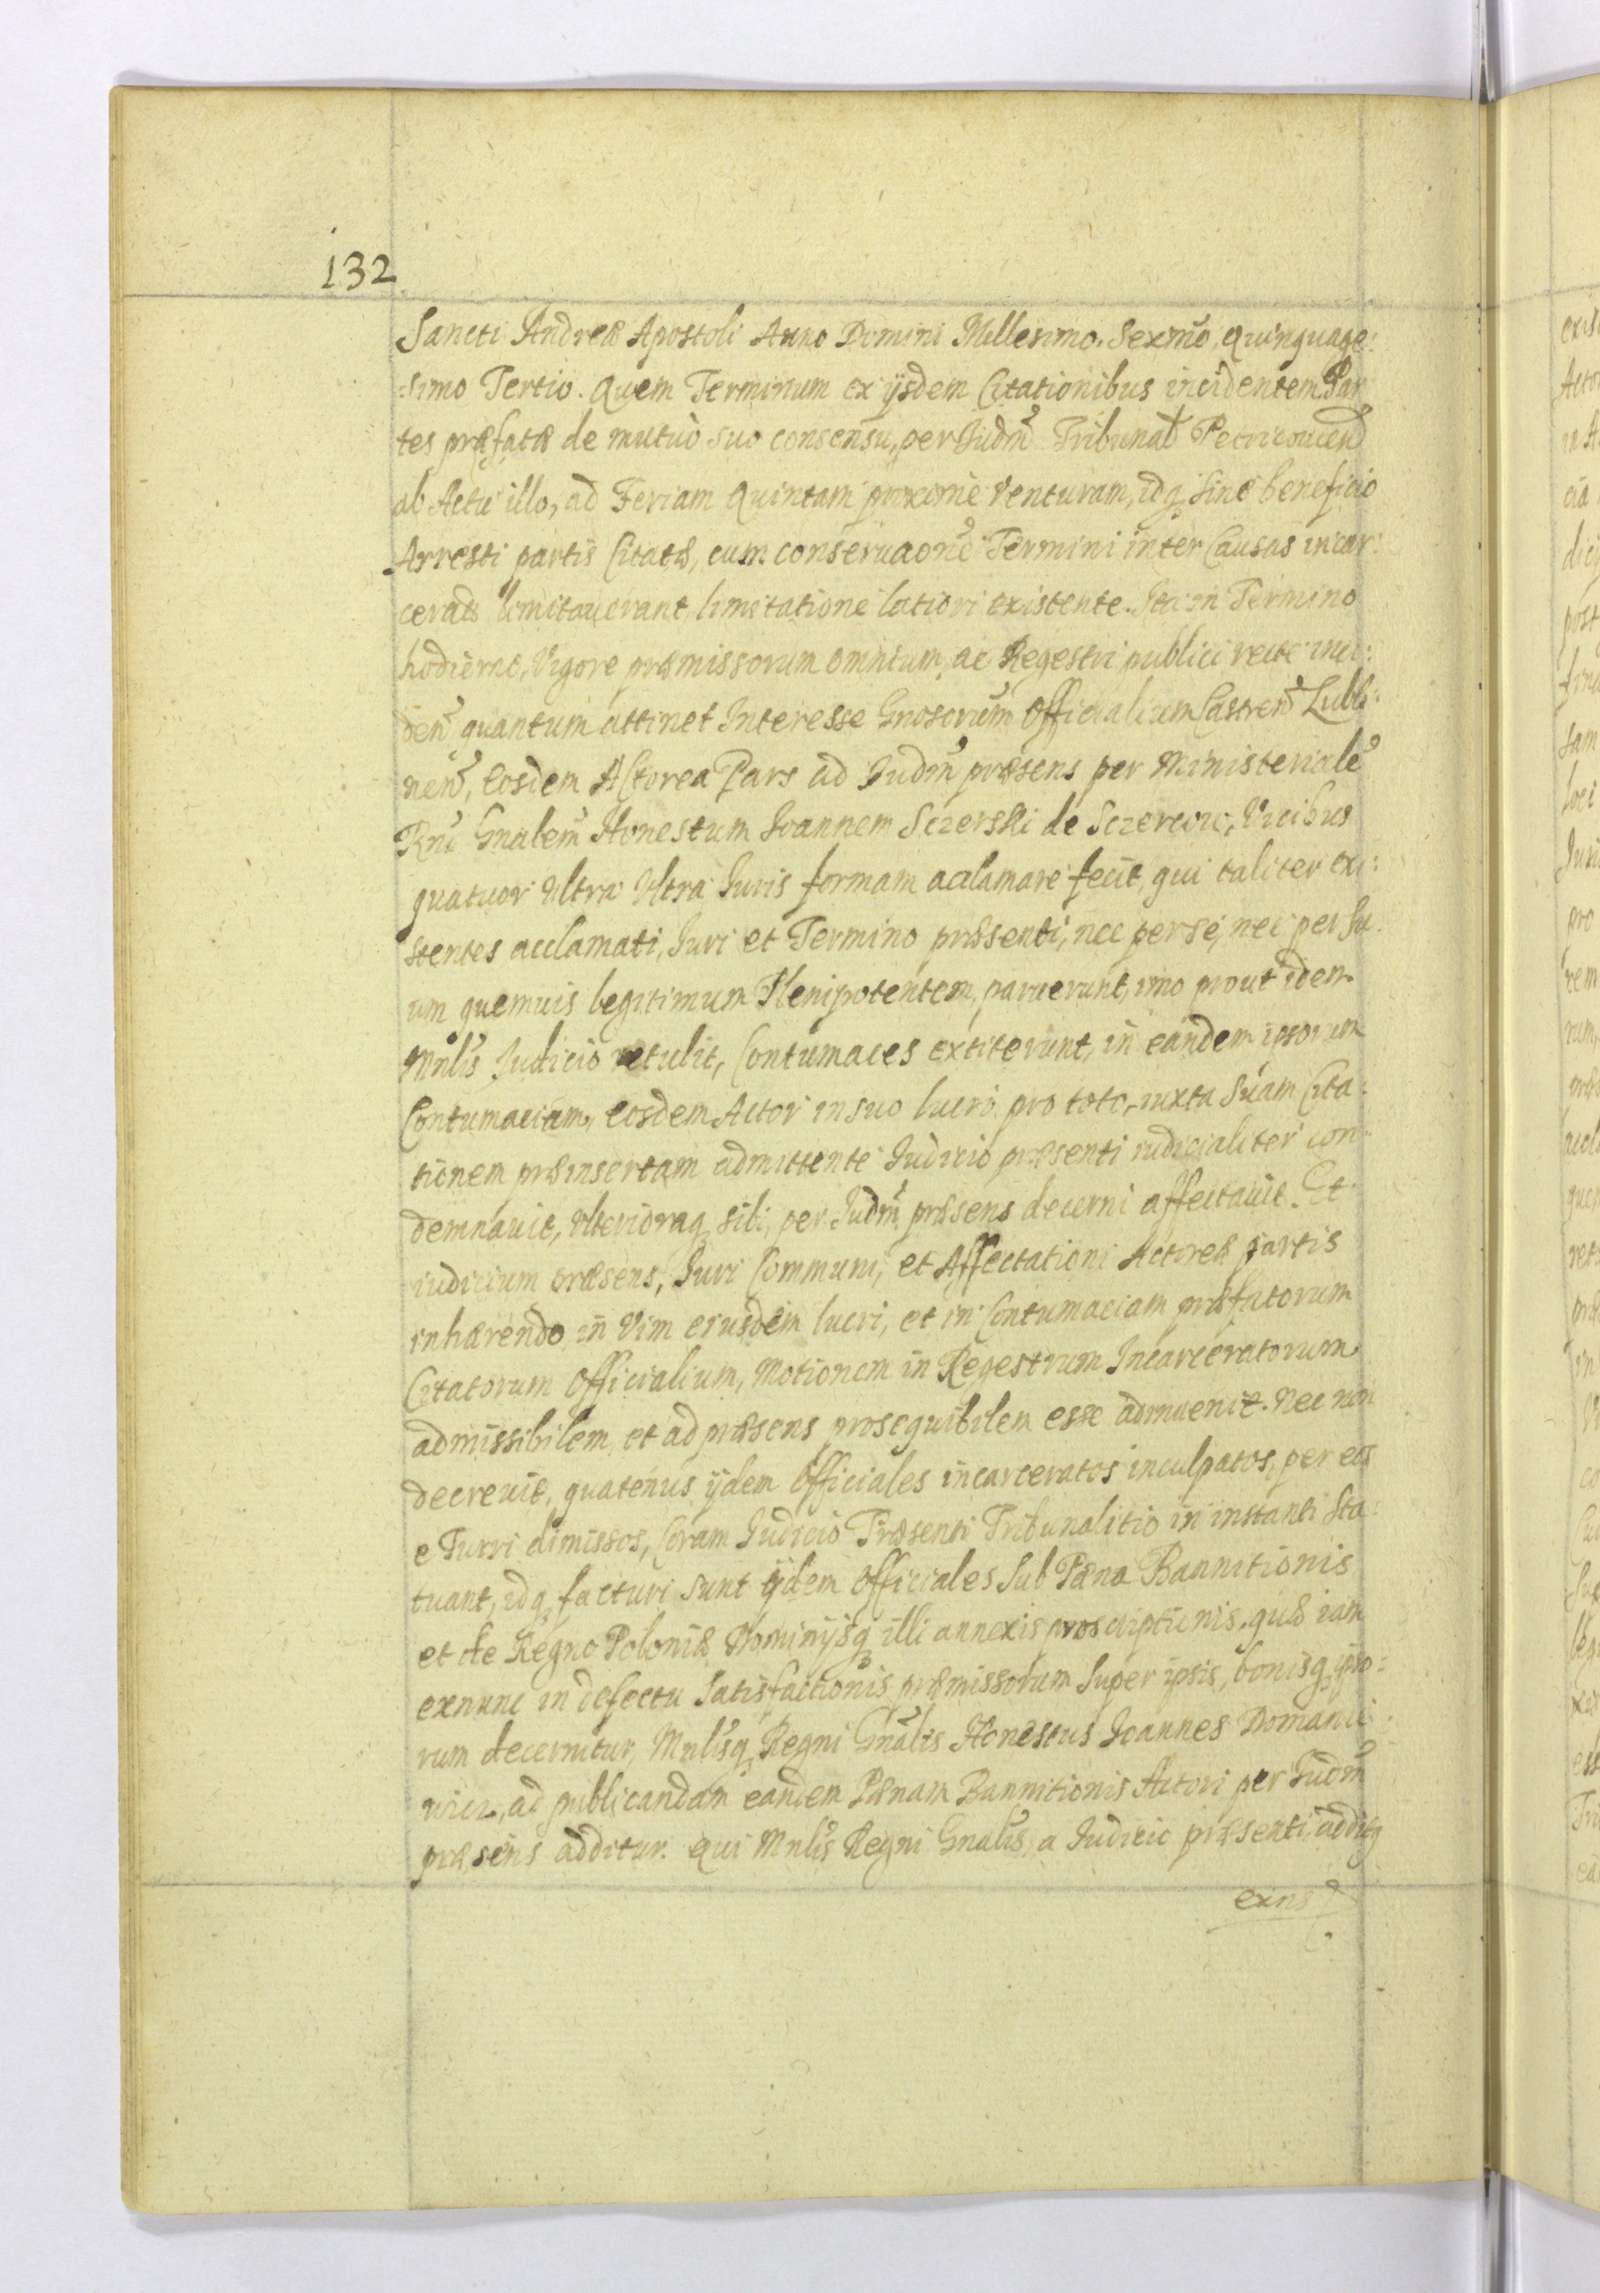 132
Sancti Andreæ Apostoli Anno Domini Millesimo Sexmo, Quinquage:
:simo Tertio. Quem Terminum ex ijsdem Citationibus incidentem Par
tes præfatæ de mutuo suo consensu, per Iudm Tribunal Petricouien
ab Actu illo, ad Feriam Quintam proxime Venturam, idq sine beneficio
Arresti partis Citatæ, cum conseruaone Termini inter Causas incar:
ceratt limitauerant, limitatione latiori existente. Ita in Termino
hodierno, Vigore præmissorum omnium, ac Regestri publici recte inci:
den quantum attinet Interesse Gnosorum Officialium Castren Lubli:
nen, Eosdem Actorea Pars ad Iudm præsens per Ministeriale
Rni Gnalem Honestum Ioannem Sczerski de Vicibus
quatuor Ultra Ultra Iuris formam acclamare fecit, qui taliter exi:
stentes acclamati, Iuri et Termino præsenti, nec per se, nec per su
um quemuis legitimum Plenipotentem, paruerunt, imo prout idem
Mnlis Iudicio retulit, Contumaces extiterunt, in eandem ipsorum
Contumaciam, eosdem Actor in suo lucro pro toto, iuxta Suam Cita:
tionem præinsertam admittente Iudicio præsenti iudicialiter con
demnauit, Ulterioraq sibi, per Iudm præsens decerni affectauit. Et
iudicium præsens, Iuri Communi, et Affectationi Actoreæ partis
inhærendo, in Vim eiusdem lucri, et in Contumaciam præfatorum
Citatorum Officialium, Motionem in Regestrum Incarceratorum
admissibilem, et ad præsens prosequibilem esse adinuenit. Nec non
decreuit, quatenus ijdem Officiales incarceratos inculpatos, per eos
e Turri dimissos, Coram Iudicio Præsenti Tribunalitio in instanti Sta:
tuant, idq facturi sunt ijdem Officiales Sub Pæna Bannitionis
et de Regno Poloniæ Dominijsq illi annexis proscriptionis, quæ iam
exnunc in defectu Satisfactionis præmissorum Super ipsis, bonisq ipso:
rum decernitur, Mnlisq Regni Gnalis Honestus Ioannes Domanie
wicz, ad publicandam eandem Pænam Bannitionis Actori per Iudm
præsens additur. Qui Mnlis Regni Gnalis, a Iudicio præsenti, additq
exns